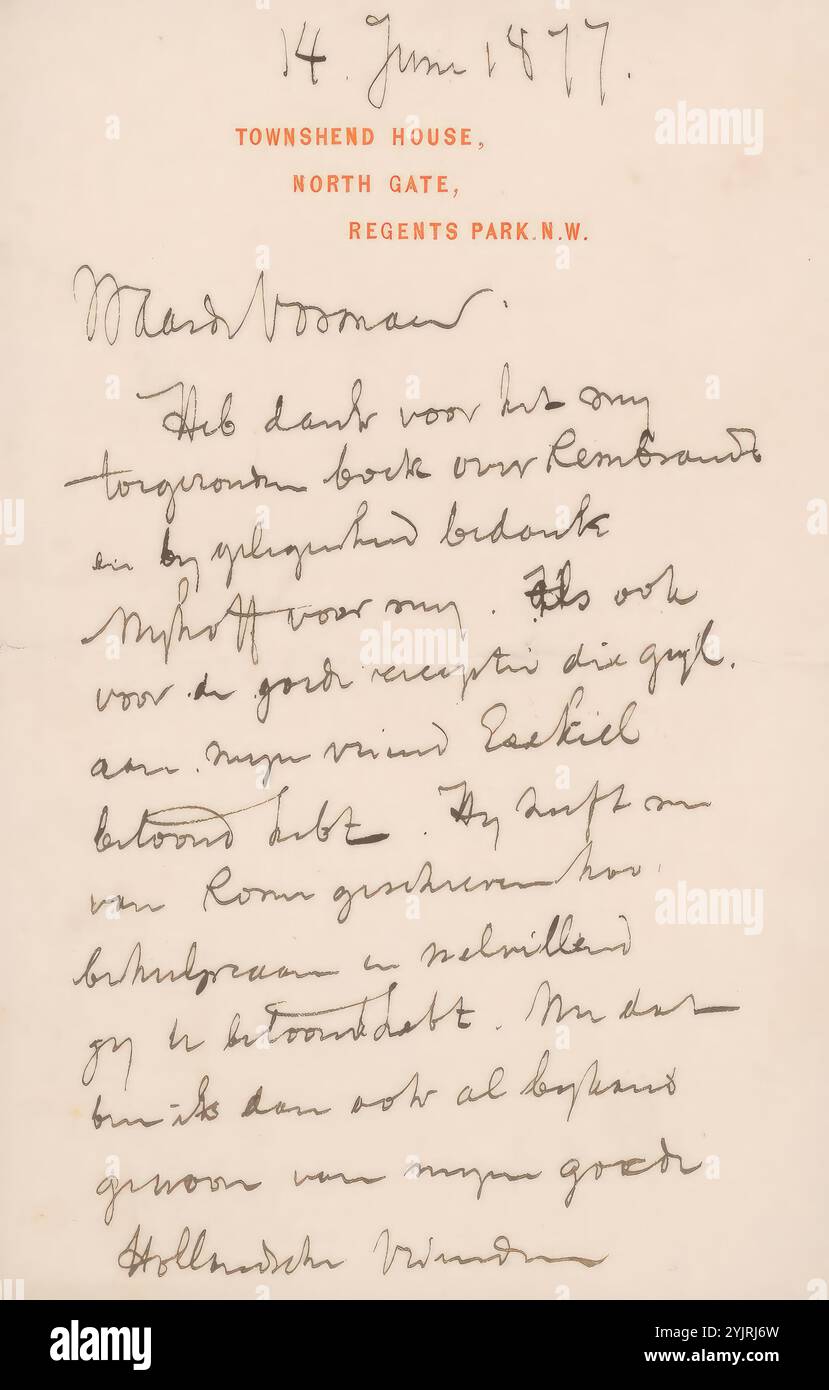 14. June 1877.
TOWNSHEND HOUSE,
NORTH GATE,
REGENTS PARK.N.W.
Waarde Vosmaer.
Heb dank voor het my
toegezonden boek over Rembrandt
en by gelegenheid bedank
Nyhoff voor my. Als ook
voor de goede receptie die gyl.
aan myn vriend Ezekiel
betoond hebt. Hy heeft me
van Rome geschreven hoe
behulpzaam en welwillend
gy U betoond hebt. Nu dat
ben ik dan ook al bykans
gewoon van myne goede
Hollandsche vrienden
alamy
Image ID: 2YJRJ6W
www.alamy.com